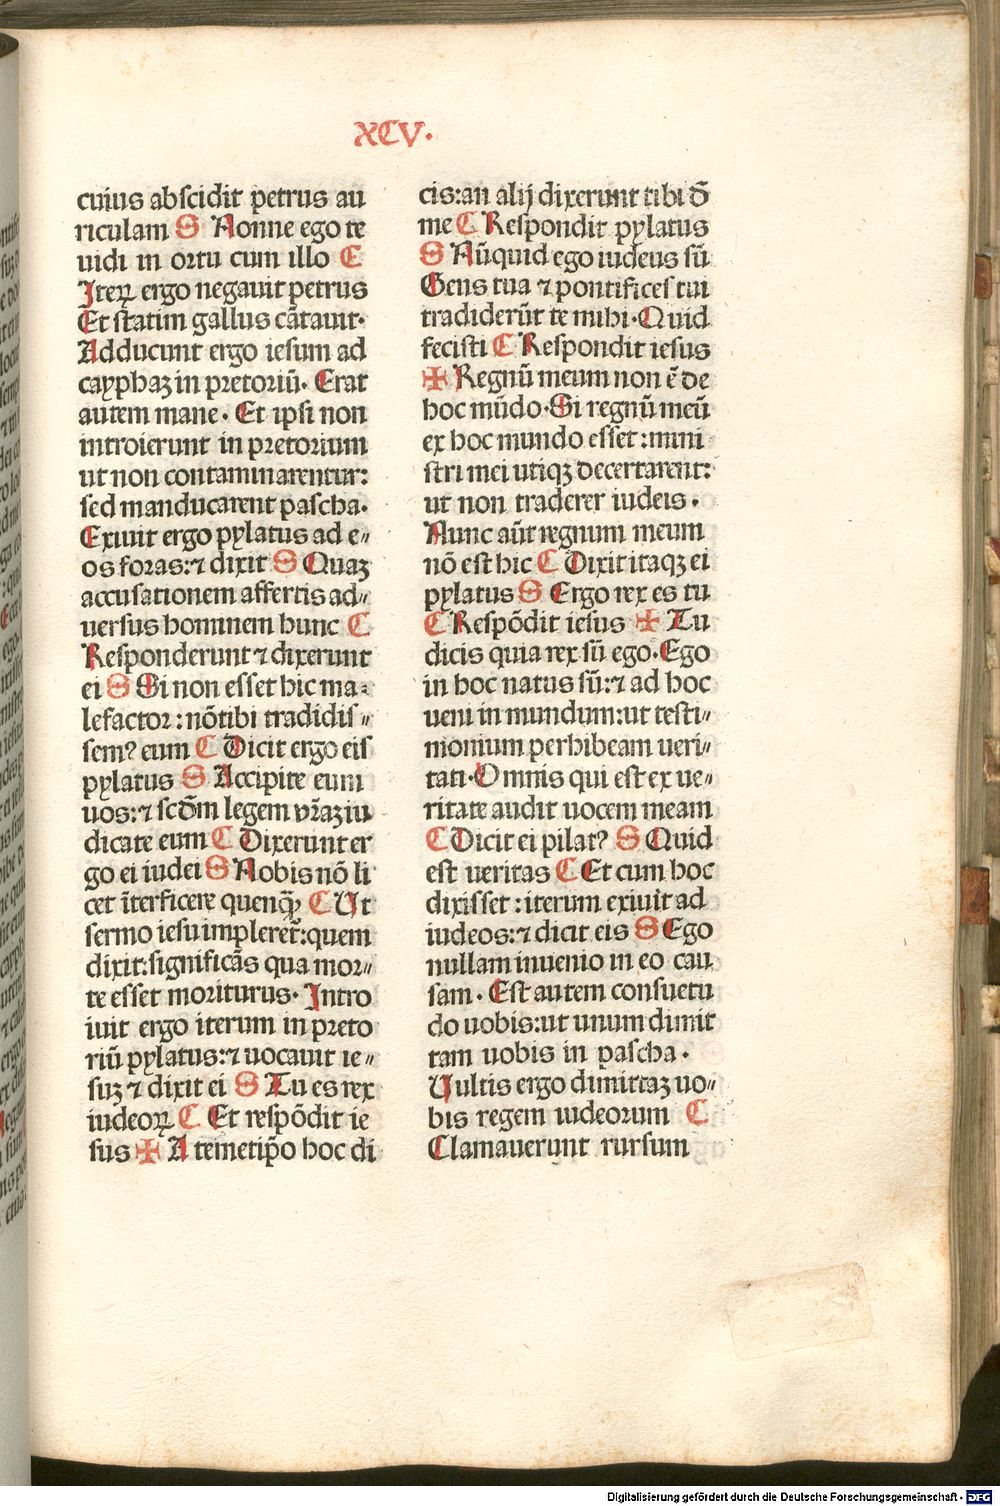 XCV.
cuius abscidit petrus au
riculam S Nonne ego te
uidi in ortu cum illo C
Iteꝝ ergo negauit petrus
Et statim gallus cātauit.
Adducunt ergo iesum ad
cayphaꝫ in pretoriū. Erat
autem mane. Et ipsi non
introierunt in pretorium
ut non contaminarentur:
sed manducarent pascha.
Exiuit ergo pylatus ad e„
os foras: ⁊ dixit S Quaꝫ
accusationem affertis ad„
uersus hominem hunc C
Responderunt ⁊ dixerunt
ei S Si non esset hic ma:
lefactor: nō tibi tradidis„
sem? eum C Dicit ergo eis
pylatus S Accipite eum
uos: ⁊ scd̄m legem vr̄aꝫ iu
dicate eum C Dixerunt er
go ei iudei S Nobis nō li
cet īterficere quenqꝫ C Ut
sermo iesu impleret̄: quem
dixit: significās qua mor„
te esset moriturus. Intro
iuit ergo iterum in preto
riū pylatus: ⁊ uocauit ie„
suꝫ ⁊ dixit ei S Tu es rex
iudeoꝝ C Et respōdit ie
sus ✠ A temetip̄o hoc di
cis: an alij dixerunt tibi đ
me C Respondit pylatus
S Nūquid ego iudeus sū
Gens tua ⁊ pontifices tui
tradiderūt te mihi. Quid
fecisti C Respondit iesus
✠ Regnū meum non ē de
hoc mūdo. Si regnū meū
ex hoc mundo esset: mini
stri mei utiqꝫ decertarent:
ut non traderer iudeis.
Nunc aūt regnum meum
nō est hic C Dixit itaqꝫ ei
pylatus S Ergo rex es tu
C Respōdit iesus ✠ Tu
dicis quia rex sū ego. Ego
in hoc natus sū: ⁊ ad hoc
ueni in mundum: ut testi„
monium perhibeam ueri„
tati. Omnis qui est ex ue„
ritate audit uocem meam
C Dicit ei pilat? S Quid
est ueritas C Et cum hoc
dixisset: iterum exiuit ad
iudeos: ⁊ dicit eis S Ego
nullam inuenio in eo cau
sam. Est autem consuetu
do uobis: ut unum dimit
tam uobis in pascha.
Uultis ergo dimittaꝫ uo„
bis regem iudeorum C
Clamauerunt rursum
Digitalisierung gefördert durch die Deutsche Forschungsgemeinschaft - DFG